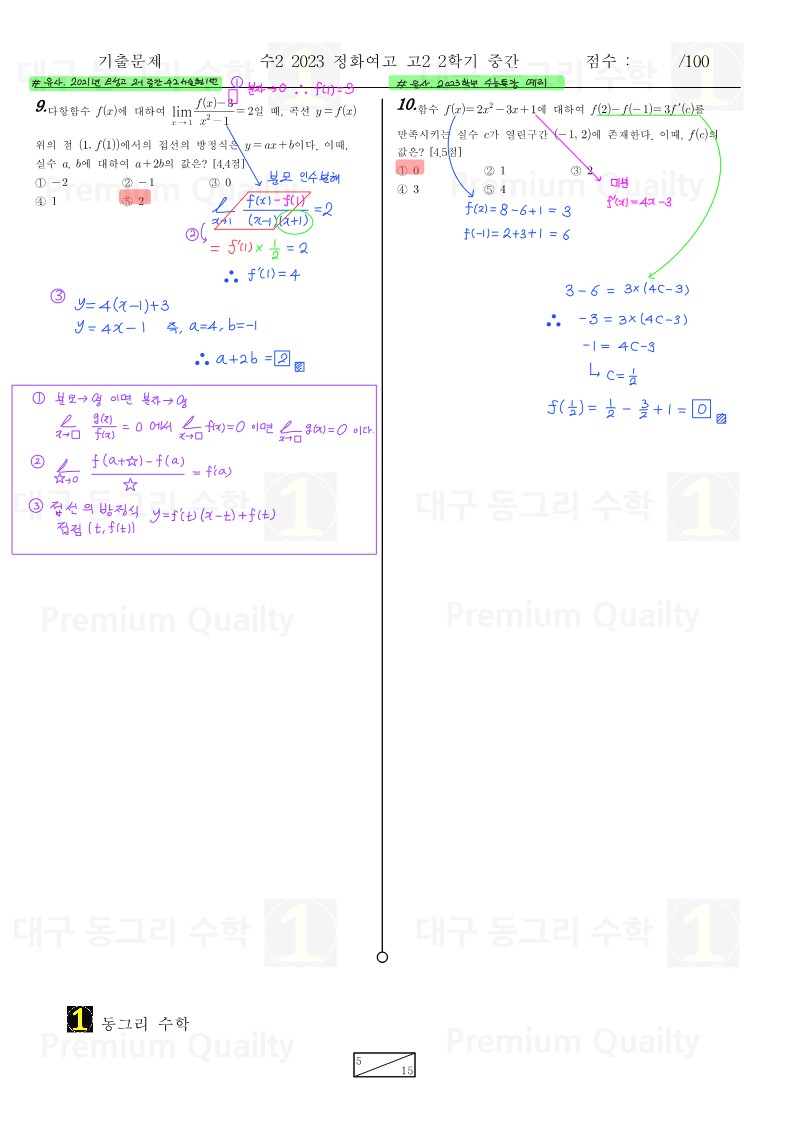 기출문제 수2 2023 정화여고 고2 2학기 중간 점수 : /100
# 유사. 2021년 고2 중간 수2 1번
① 분자→0 ∴ f(1)=3
9. 다항함수 f(x)에 대하여 lim x→1 (f(x)-3)/(x²-1) = 2일 때, 곡선 y=f(x)
위의 점 (1, f(1))에서의 접선의 방정식은 y=ax+b이다. 이때,
실수 a, b에 대하여 a+2b의 값은? [4.4점]
① -2 ② -1 ③ 0
④ 1 ⑤ 2
분모 인수분해
lim x→1 (f(x)-f(1))/((x-1)(x+1)) = 2
②
= f'(1) × 1/2 = 2
∴ f'(1)=4
③ y=4(x-1)+3
y=4x-1 즉, a=4, b=-1
∴ a+2b = 2
① 분모→0 이면 분자→0
lim x→□ g(x)/f(x) = 0 에서 lim x→□ f(x)=0 이면 lim x→□ g(x)=0 이다.
② lim ☆→0 (f(a+☆)-f(a))/☆ = f'(a)
③ 접선의 방정식 y=f'(t)(x-t)+f(t)
접점 (t, f(t))
# 유사. 2023학년 수능특강 예제
10. 함수 f(x)=2x²-3x+1에 대하여 f(2)-f(-1)=3f'(c)를
만족시키는 실수 c가 열린구간 (-1, 2)에 존재한다. 이때, f(c)의
값은? [4.5점]
① 0 ② 1 ③ 2
④ 3 ⑤ 4
미분
f'(x)=4x-3
f(2)=8-6+1=3
f(-1)=2+3+1=6
3-6 = 3×(4c-3)
∴ -3=3×(4c-3)
-1= 4c-3
↳ c=1/2
f(1/2)= 1/2 - 3/2 +1 = 0
대구 동그리 수학 1
Premium Quailty
1 동그리 수학
5
15